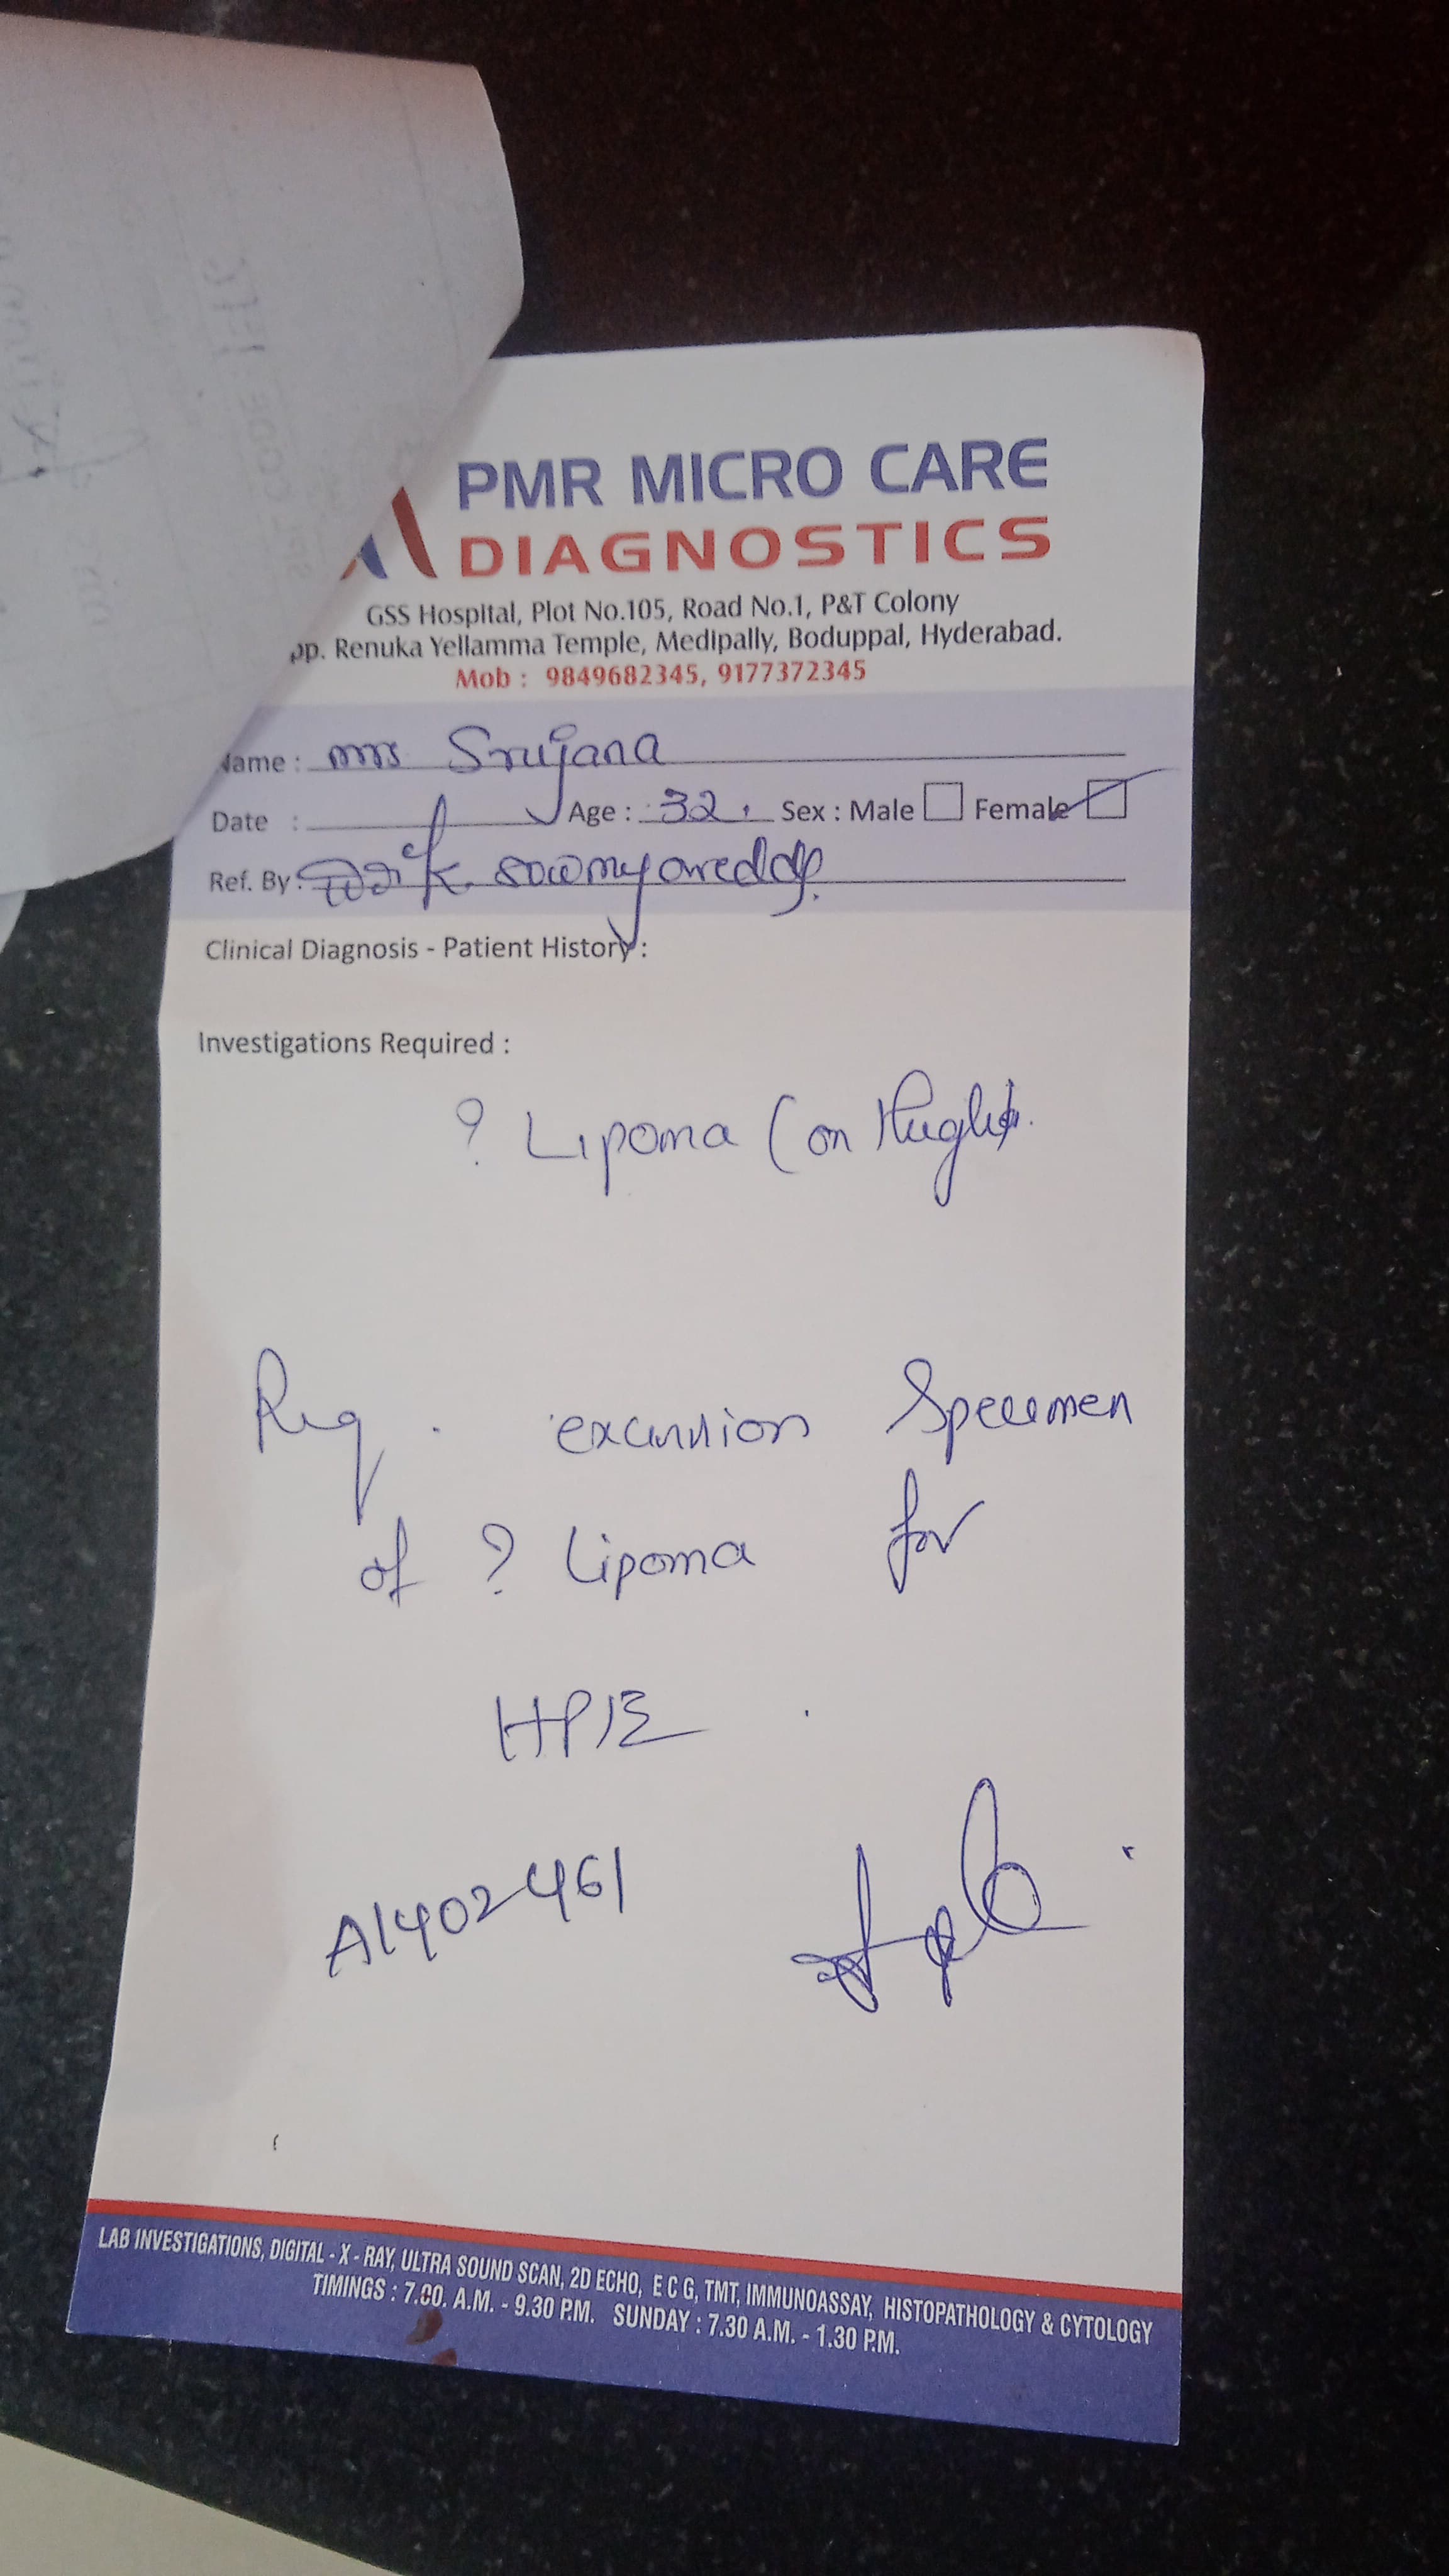 PMR MICRO CARE
DIAGNOSTICS
GSS Hospital, Plot No.105, Road No.1, P&T Colony
pp. Renuka Yellamma Temple, Medipally, Boduppal, Hyderabad.
Mob : 9849682345, 9177372345
Name : mrs Srujana
Date : Age : 32. Sex : Male Female
Ref. By : K. sowmyareddy.
Clinical Diagnosis - Patient History :
Investigations Required :
? Lipoma (on thigh).
Req. excission Specimen
of ? Lipoma for
HPE
A1402461
LAB INVESTIGATIONS, DIGITAL - X - RAY, ULTRA SOUND SCAN, 2D ECHO, E C G, TMT, IMMUNOASSAY, HISTOPATHOLOGY & CYTOLOGY
TIMINGS : 7.00. A.M. - 9.30 P.M. SUNDAY : 7.30 A.M. - 1.30 P.M.